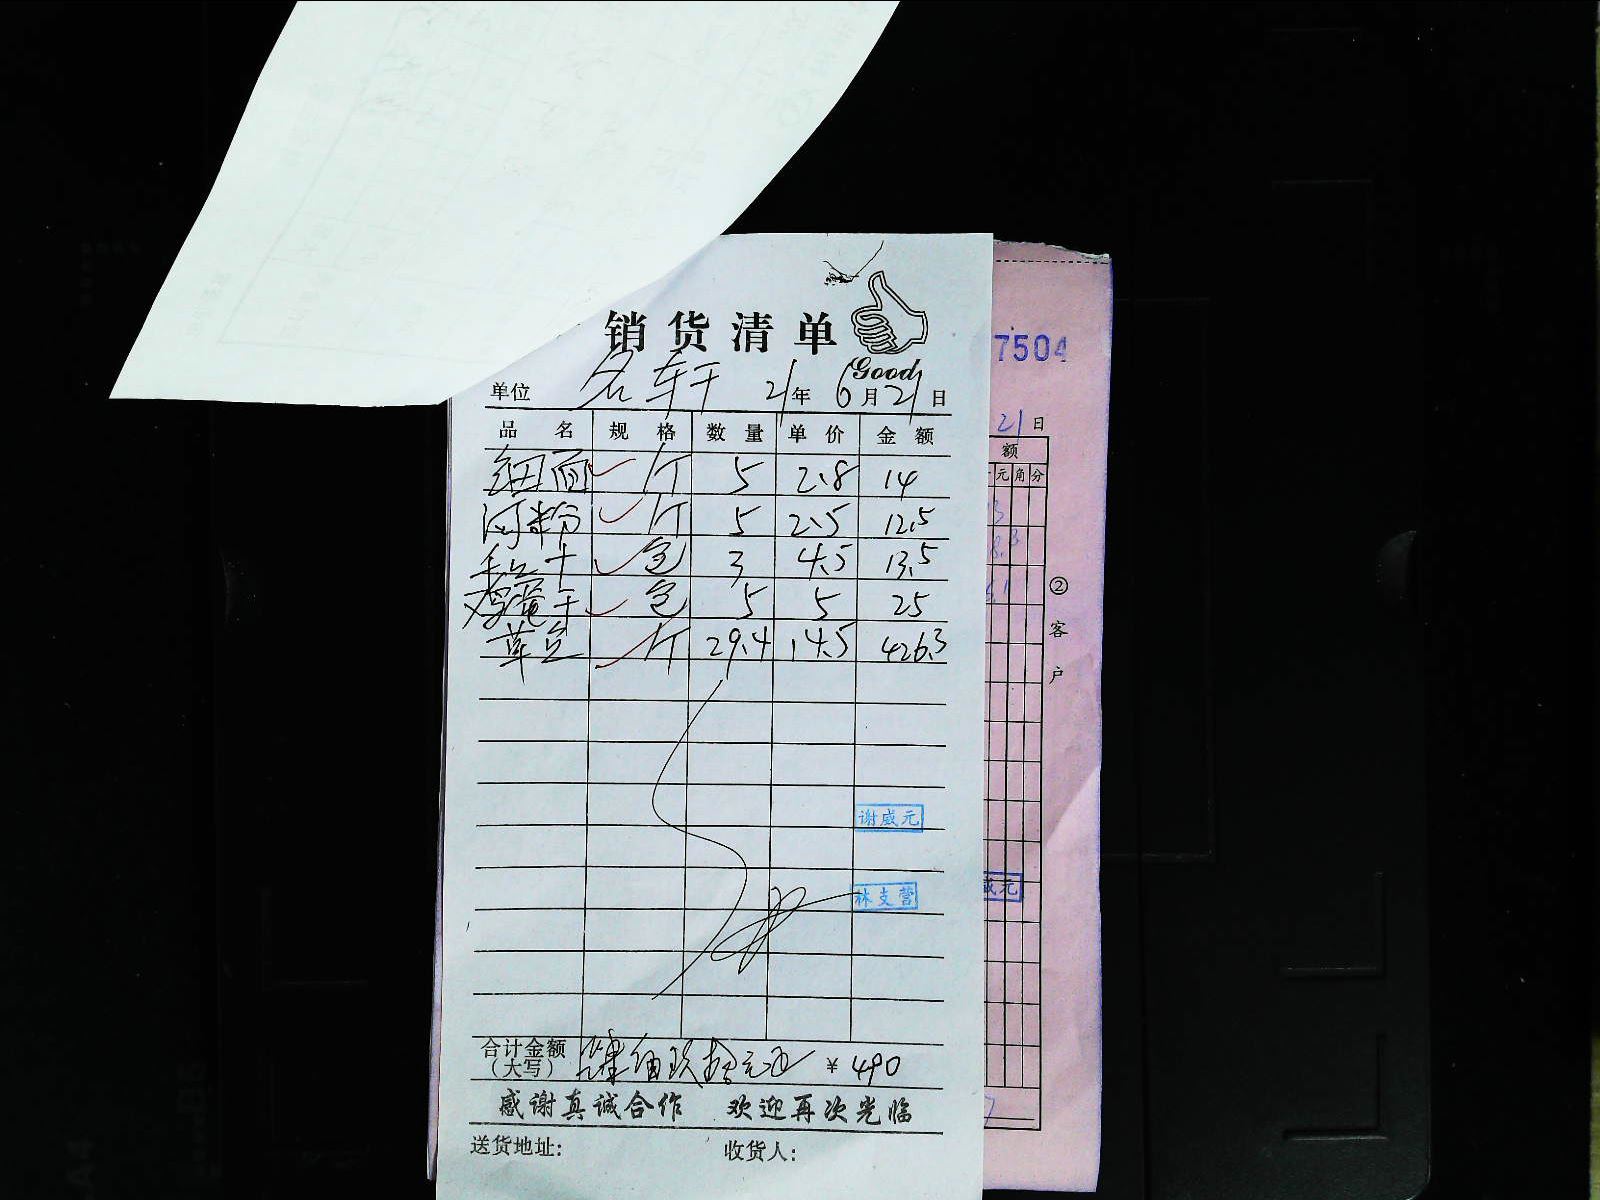 销货清单
Good
7504
单位 名轩 21年6月21日
21日
品名 规格 数量 单价 金额
额
元角分
细面 斤 5 2.8 14
河粉 斤 5 2.5 12.5
包 3 4.5 13.5
鸡蛋干 包 5 5 25
斤 29.4 14.5 426.3
②客户
谢威元
林支营
威元
合计金额（大写） 肆佰玖拾元正 ¥490
感谢真诚合作 欢迎再次光临
送货地址: 收货人: